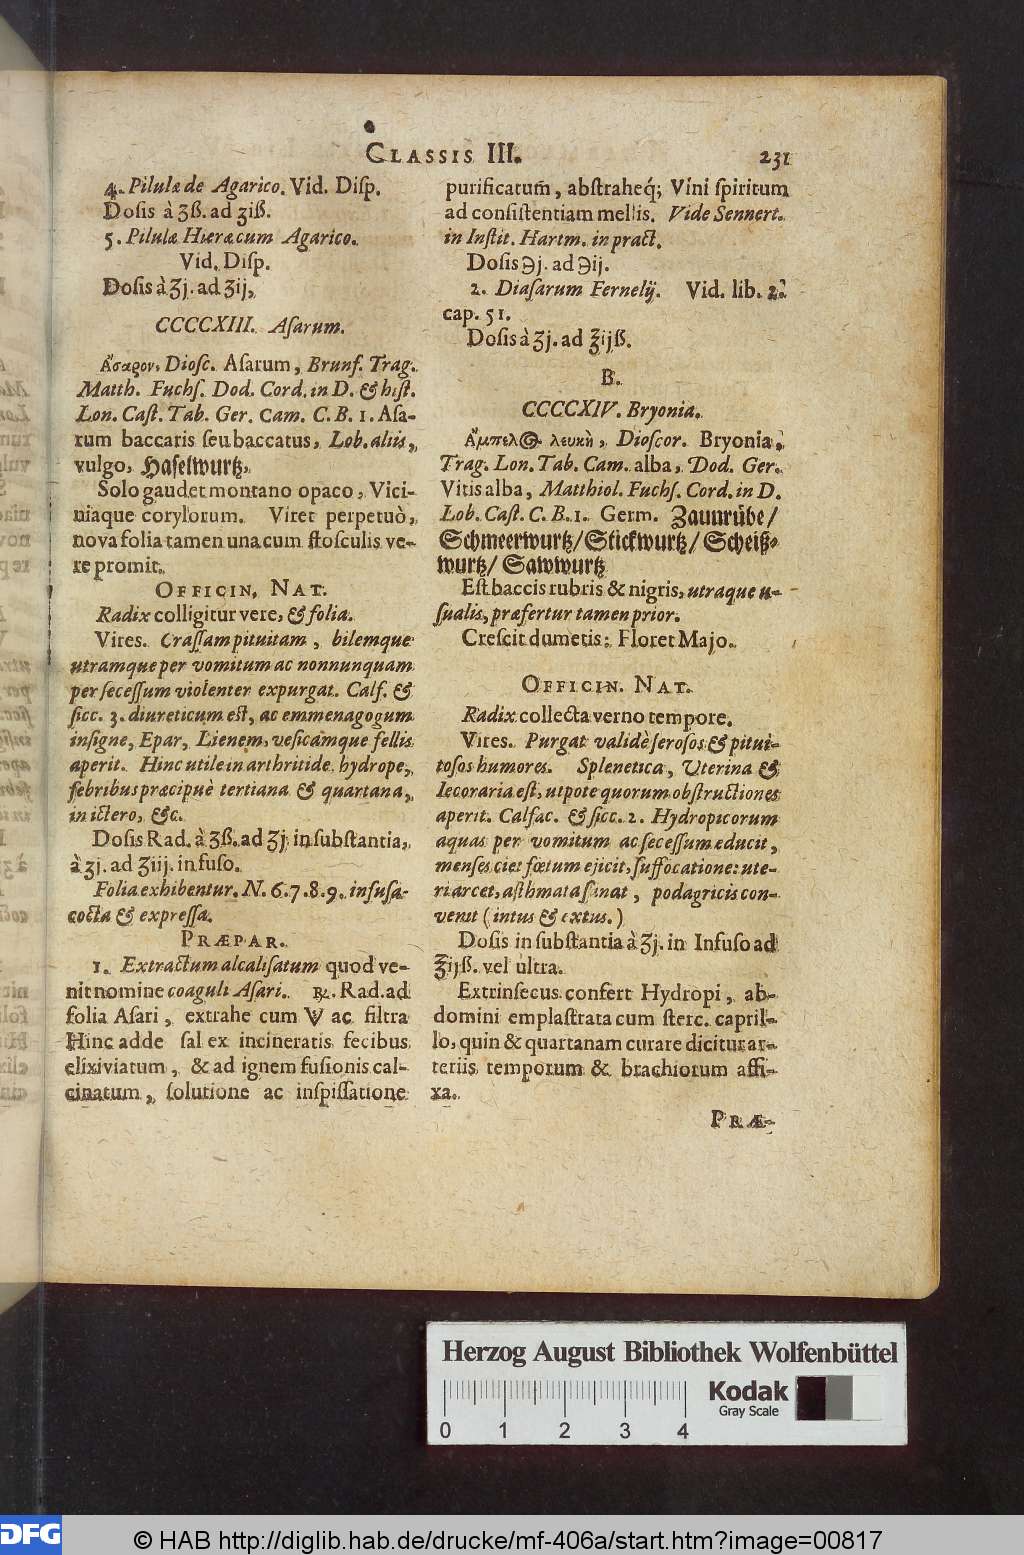 CLASSIS III. 231
4. Pilulæ de Agarico. Vid. Disp.
Dosis à ʒß. ad ʒiß.
5. Pilulæ Hieræ cum Agarico.
Vid. Disp.
Dosis à ʒj. ad ʒij.
CCCCXIII. Asarum.
Ἄσαρον, Diosc. Asarum, Brunf. Trag.
Matth. Fuchs. Dod. Cord. in D. & hist.
Lon. Cast. Tab. Ger. Cam. C. B. 1. Asa-
rum baccaris seu baccatus, Lob. aliis,
vulgo, Haselwurtz,
Solo gaudet montano opaco, Vici-
niaque corylorum. Viret perpetuò,
nova folia tamen una cum flosculis ve-
re promit.
OFFICIN. NAT.
Radix colligitur vere, & folia.
Vires. Crassam pituitam, bilemque
utramque per vomitum ac nonnunquam
per secessum violenter expurgat. Calf. &
sicc. 3. diureticum est, ac emmenagogum
insigne, Epar, Lienem, vesicamque fellis
aperit. Hinc utile in arthritide, hydrope,
febribus præcipuè tertiana & quartana,
in ictero, &c.
Dosis Rad. à ʒß. ad ʒj in substantia,
à ʒj. ad ʒiij. infuso.
Folia exhibentur. N. 6. 7. 8. 9. infusa
cocta & expressa.
PRÆPAR.
1. Extractum alcalisatum quod ve-
nit nomine coaguli Asari. ℞. Rad. ad
folia Asari, extrahe cum 🜄 ac filtra
Hinc adde sal ex incineratis fecibus
elixiviatum, & ad ignem fusionis cal-
cinatum, solutione ac inspissatione
purificatum, abstraheq́; Vini spiritum
ad consistentiam mellis. Vide Sennert.
in Instit. Hartm. in pract.
Dosis ℈j. ad ℈ij.
2. Diasarum Fernelij. Vid. lib. 2.
cap. 51.
Dosis à ʒj. ad ℥ijß.
B.
CCCCXIV. Bryonia.
Ἄμπελος λευκὴ, Dioscor. Bryonia,
Trag. Lon. Tab. Cam. alba, Dod. Ger.
Vitis alba, Matthiol. Fuchs. Cord. in D.
Lob. Cast. C. B. 1. Germ. Zaunrübe/
Schmeerwurtz/ Stickwurtz/ Scheiß-
wurtz/ Sawwurtz
Est baccis rubris & nigris, utraque u-
sualis, præfertur tamen prior.
Crescit dumetis: Floret Majo.
OFFICIN. NAT.
Radix collecta verno tempore.
Vires. Purgat validè serosos & pitui-
tosos humores. Splenetica, Uterina &
Iecoraria est, utpote quorum obstructiones
aperit. Calfac. & sicc. 2. Hydropicorum
aquas per vomitum ac secessum educit,
menses ciet fœtum ejicit, suffocatione: ute-
ri arcet, asthmata sanat, podagricis con-
venit (intus & extus.)
Dosis in substantia à ʒj. in Infuso ad
℥ijß. vel ultra.
Extrinsecus confert Hydropi, ab-
domini emplastrata cum sterc. capril-
lo, quin & quartanam curare dicitur ar-
teriis temporum & brachiorum affi-
xa.
PRÆ-
Herzog August Bibliothek Wolfenbüttel
Kodak
Gray Scale
0 1 2 3 4
DFG
© HAB http://diglib.hab.de/drucke/mf-406a/start.htm?image=00817